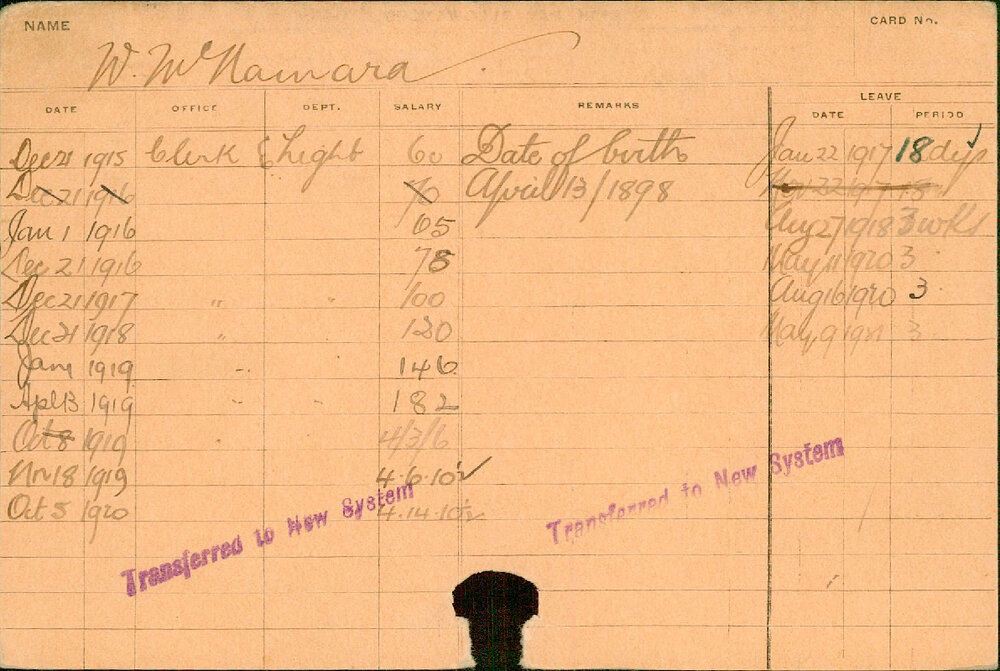 NAME
CARD No.
W. McNamara
DATE OFFICE DEPT. SALARY REMARKS LEAVE
DATE PERIOD
Dec 21 1915 Clerk Light 60 Date of birth Jan 22 1917 18 dys
Dec 21 1916 70 April 13/1898
Jan 1 1916 65 Aug 27 1918 3 wks
Dec 21 1916 78 May 11 1920 3
Dec 21 1917 " " 100 Aug 16 1920 3
Dec 21 1918 " 120 May 9 1921 3
Jan 1 1919 " 146
Apl 13 1919 " " 182
Oct 8 1919 4/3/6
Nov 18 1919 4.6.10½
Oct 5 1920 4.14.10½
Transferred to New System
Transferred to New System